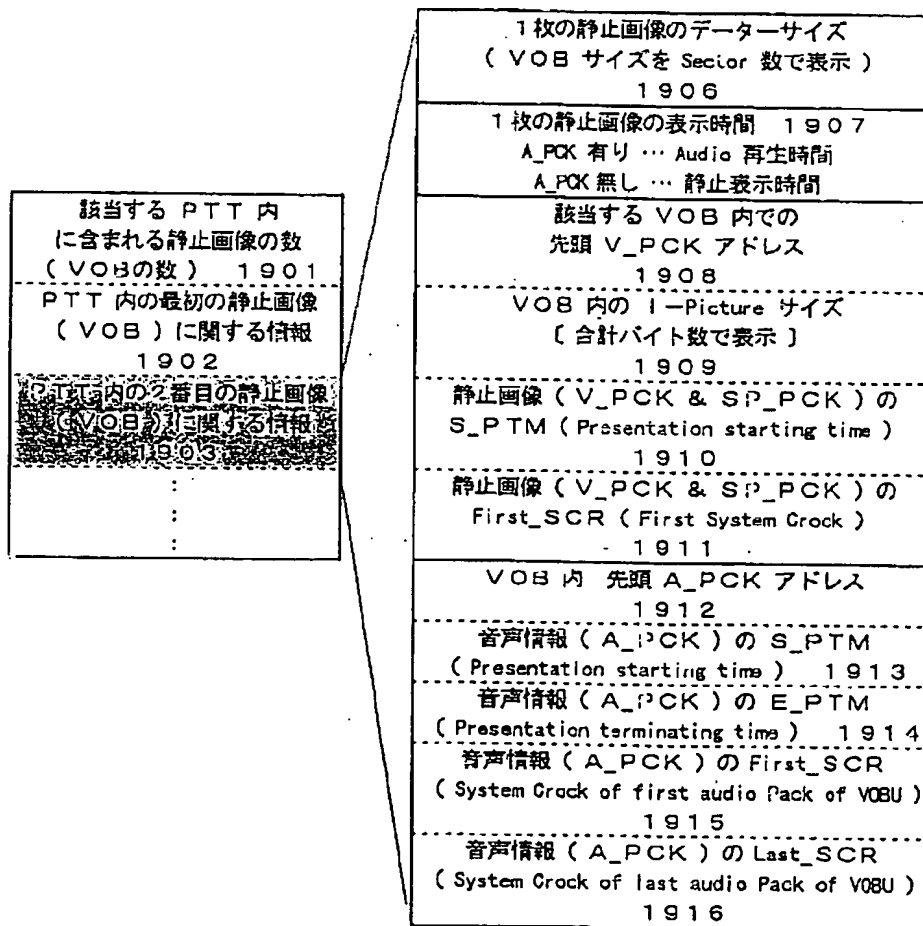 該当する PTT 内
に含まれる静止画像の数
( VOBの数 ) 1901
PTT 内の最初の静止画像
( VOB ) に関する情報
1902
PTT 内の2番目の静止画像
( VOB ) に関する情報
1903
:
:
:
1枚の静止画像のデーターサイズ
( VOB サイズを Secior 数で表示 )
1906
1枚の静止画像の表示時間 1907
A_PCK 有り … Audio 再生時間
A_PCK 無し … 静止表示時間
該当する VOB 内での
先頭 V_PCK アドレス
1908
VOB 内の I-Picture サイズ
[ 合計バイト数で表示 ]
1909
静止画像 ( V_PCK & SP_PCK ) の
S_PTM ( Presentation starting time )
1910
静止画像 ( V_PCK & SP_PCK ) の
First_SCR ( First System Crock )
1911
VOB 内 先頭 A_PCK アドレス
1912
音声情報 ( A_PCK ) の S_PTM
( Presentation starting time ) 1913
音声情報 ( A_PCK ) の E_PTM
( Presentation terminating time ) 1914
音声情報 ( A_PCK ) の First_SCR
( System Crock of first audio Pack of VOBU )
1915
音声情報 ( A_PCK ) の Last_SCR
( System Crock of last audio Pack of VOBU )
1916